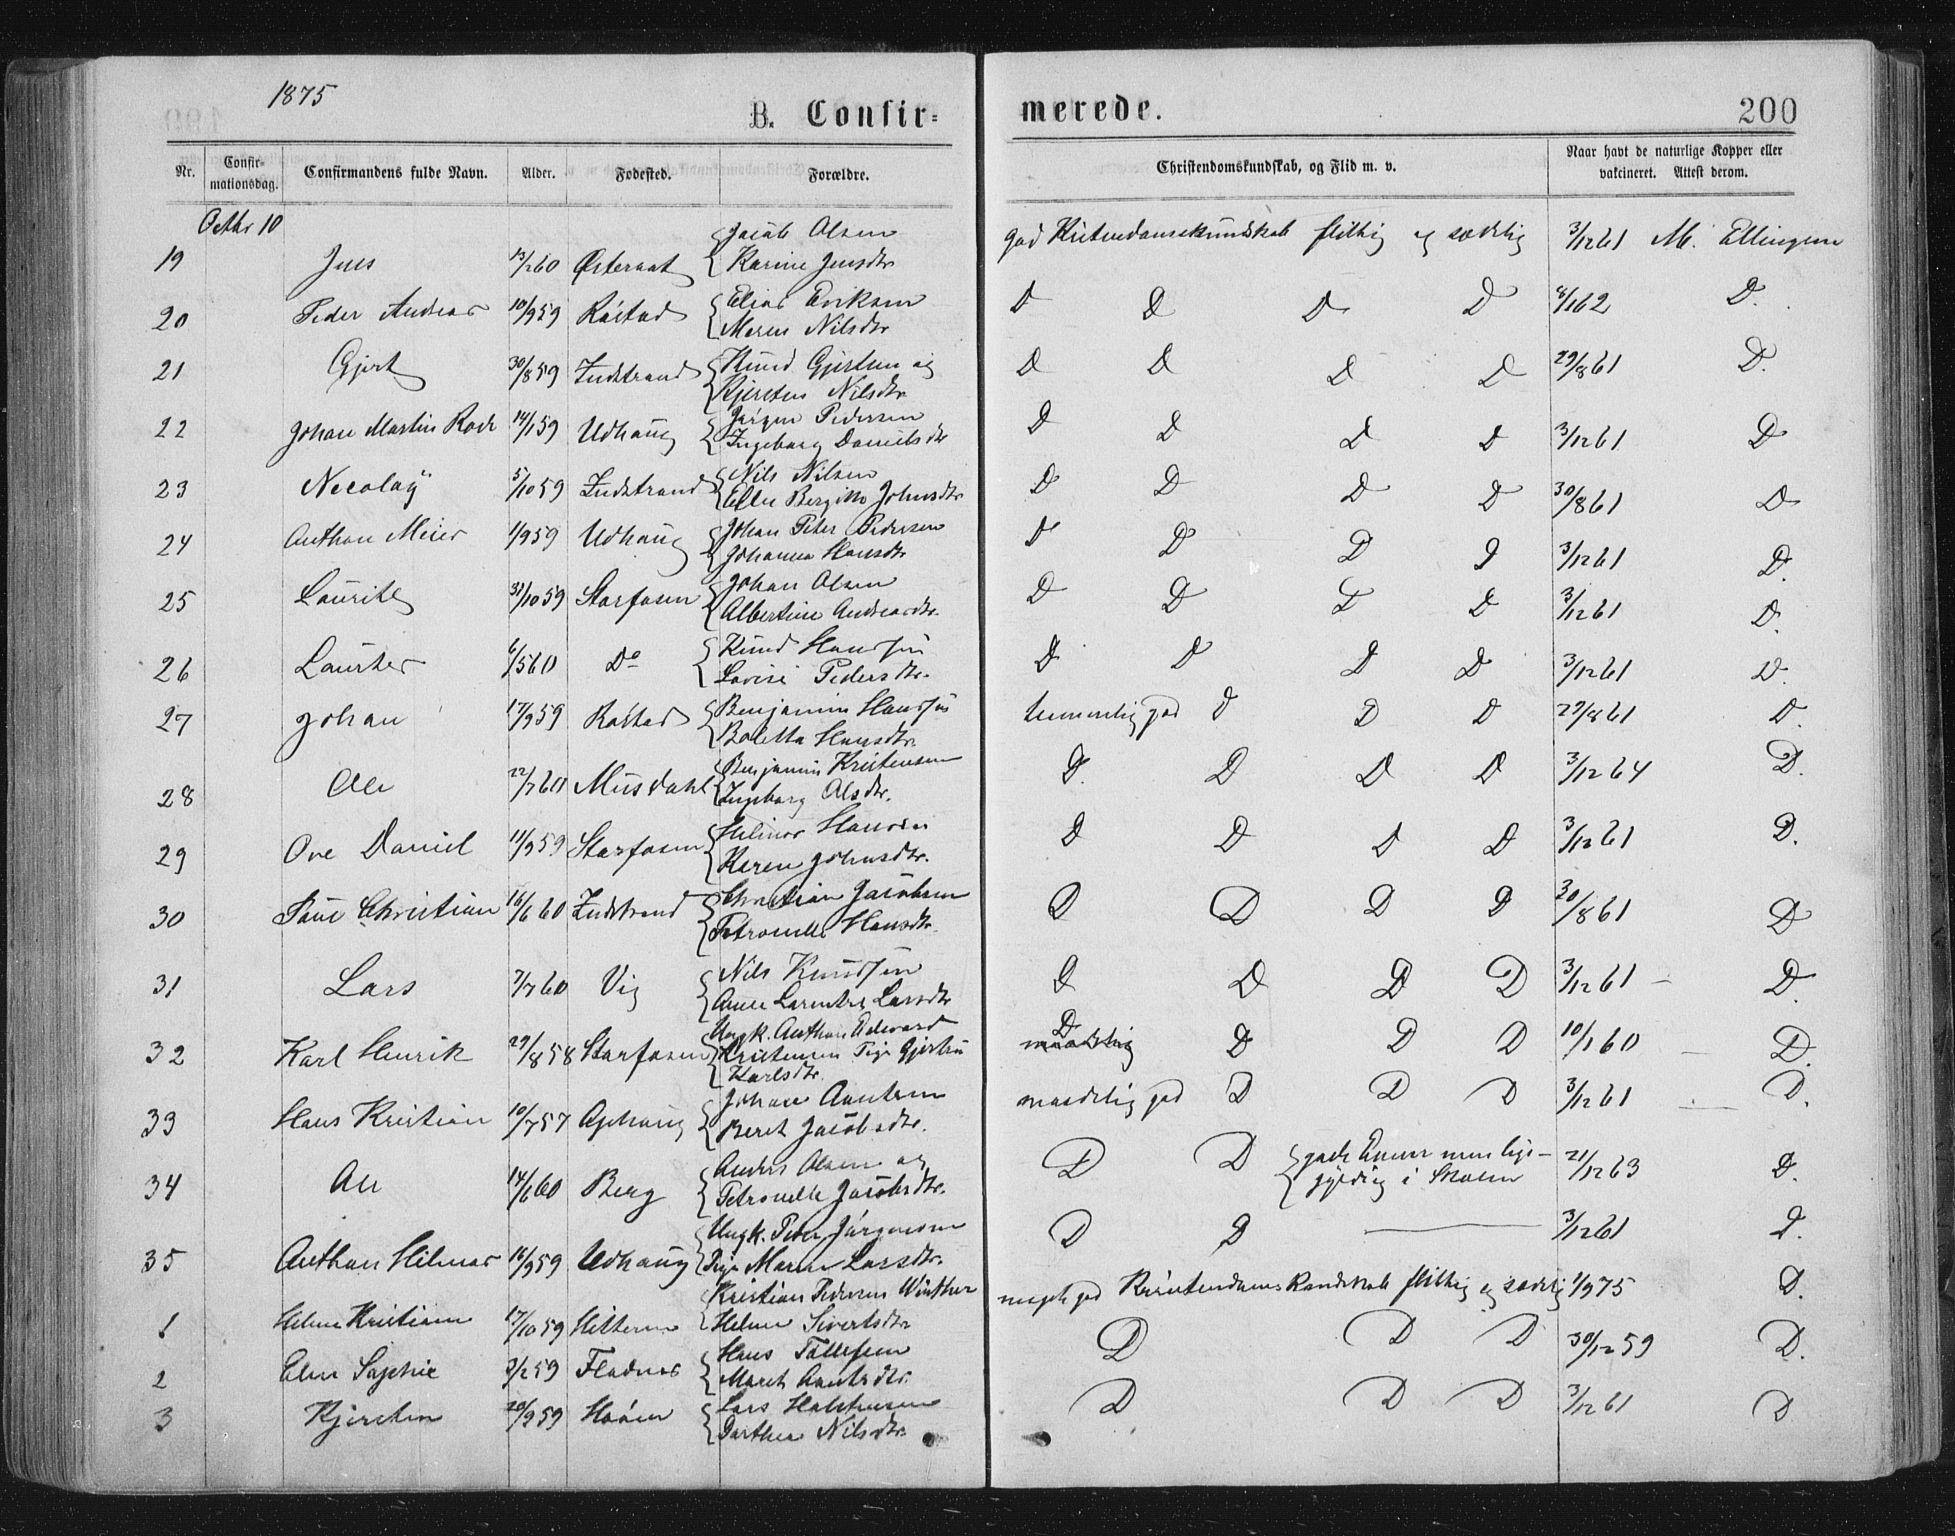 1875
B. Confir=
merede.
200
Nr. Confir=mationsdag. Confirmandens fulde Navn. Alder. Fødested. Forældre. Christendomskundskab, og Flid m. v. Naar havt de naturlige Kopper eller vakcineret. Attest derom.
Octbr 10
Jacob Olsen
19 Jens 13/2 60 Østeraat Karine Jensdtr god Kristendomskundskab flittig og sædelig 3/12 61 M. Ellingsen
Elias Eriksen
20 Peder Andreas 10/9 59 Røstad Maren Nilsdtr D D D D 8/1 62 D.
Knud Gjertsen og
21 Gjert 30/8 59 Indstrand Kjersten Nilsdtr D D D D 29/8 61 D.
Jørgen Pedersen
22 Johan Martin Rode 14/1 59 Udhaug Ingeborg Danielsdtr D D D D 3/12 61 D
Nils Nilsen
23 Necolaÿ 5/10 59 Indstrand Ellen Bergitte Johnsdtr D D D D 30/8 61 D
Johan Peter Pedersen
24 Anthon Meier 1/9 59 Udhaug Johanna Hansdtr D D D D 3/12 61 D.
Johan Olsen
25 Lauritz 31/10 59 Storfosen Albertine Andreasdtr. D D D D 3/12 61 D.
Knud Hansen
26 Lauritz 6/5 60 Do Lovise Pedersdtr. D D D D 3/12 61 D.
Benjamin Hansen
27 Johan 17/9 59 Røstad Boletta Hansdtr. temmelig god D D D 29/8 61 D.
Benjamin Kristensen
28 Ole 22/7 60 Musdahl Ingeborg Olsdtr. D. D D D 3/12 64 D.
Helmer Hansen
29 Ove Daniel 11/9 59 Storfosen Karen Johnsdtr. D D D D 3/12 61 D.
Christian Jacobsen
30 Paul Christian 16/6 60 Indstrand Petronelle Hansdtr. D D D D 30/8 61 D
Nils Knudsen
31 Lars 7/7 60 Vig Anne Larsdtr D D D D 3/12 61 - D.
Ungk. Anthon Edvard
32 Karl Henrik 29/8 58 Storfosen Kristensen Pige Gjertru D D D D 10/1 60 - D.
Karlsdtr.
Johan
33 Hans Kristian 10/7 57 Ophaug Beret Jacobsdtr. maadelig god D D D 3/12 61 - D.
Anders Olsen og gode Evner men lige-
34 Ole 14/6 60 Berg Petronelle Jacobsdtr. D D gyldig i Skolen 21/12 63 D.
Ungk. Peder Jørgensen
35 Anthon Hilmar 16/9 59 Udhaug Pige Maren Larsdtr. D D 3/12 61 D.
Kristian Pedersen Winther
1 Helene Kristiane 17/10 59 Hitteren Helene Sivertsdtr meget god Kristendomskundskab flittig og sædelig 1/9 75 D.
Hans Tollefsen
2 Elen Sophie 3/2 59 Fladnes Maret D D D 30/12 59 D.
Lars
3 Kjersten 20/9 59 Hoøen Dorthea Nilsdtr. D D D 3/12 61 D